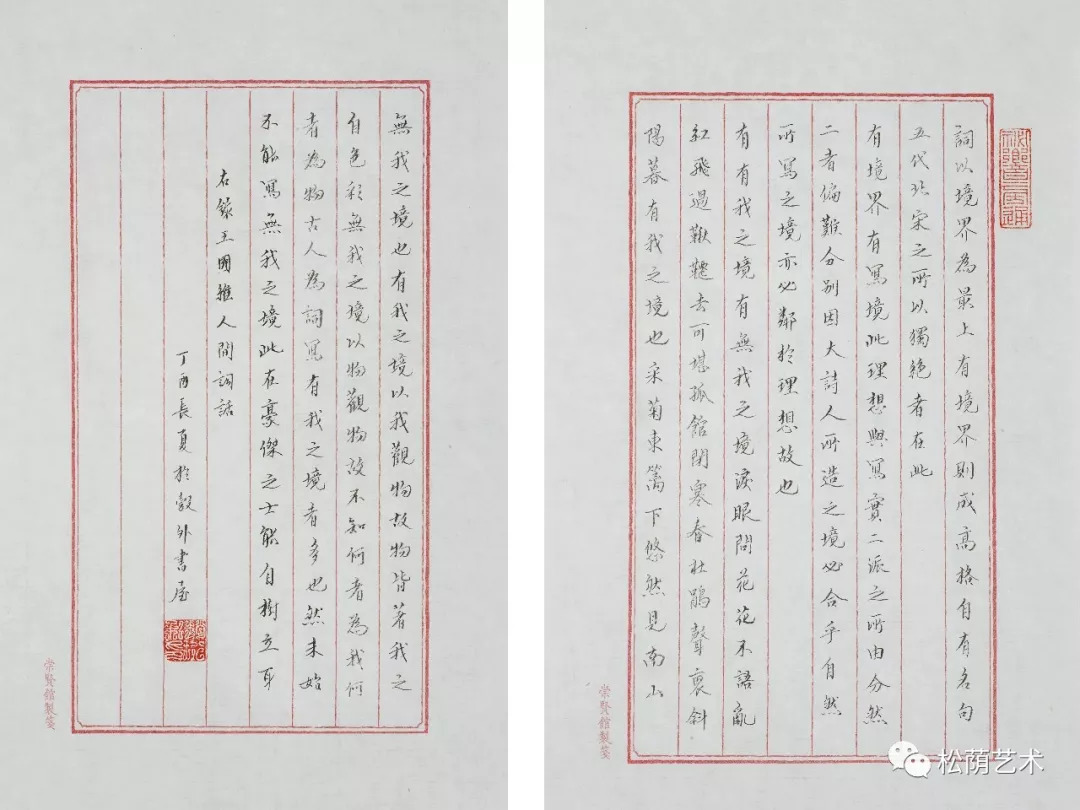 詞以境界為最上有境界則成高格自有名句
五代北宋之所以獨絕者在此
有境界有寫境此理想與寫實二派之所由分然
二者偏難分別因大詩人所造之境必合乎自然
所寫之境亦必鄰於理想故也
有有我之境有無我之境淚眼問花花不語亂
紅飛過鞦韆去可堪孤館閉寒春杜鵑聲裏斜
陽暮有我之境也采菊東籬下悠然見南山
崇賢館製箋
無我之境也有我之境以我觀物故物皆著我之
自色彩無我之境以物觀物故不知何者為我何
者為物古人為詞寫有我之境者多也然未始
不能寫無我之境此在豪傑之士能自樹立耳
右錄王國維人間詞話
丁酉長夏於穀外書屋
崇賢館製箋
松荫艺术